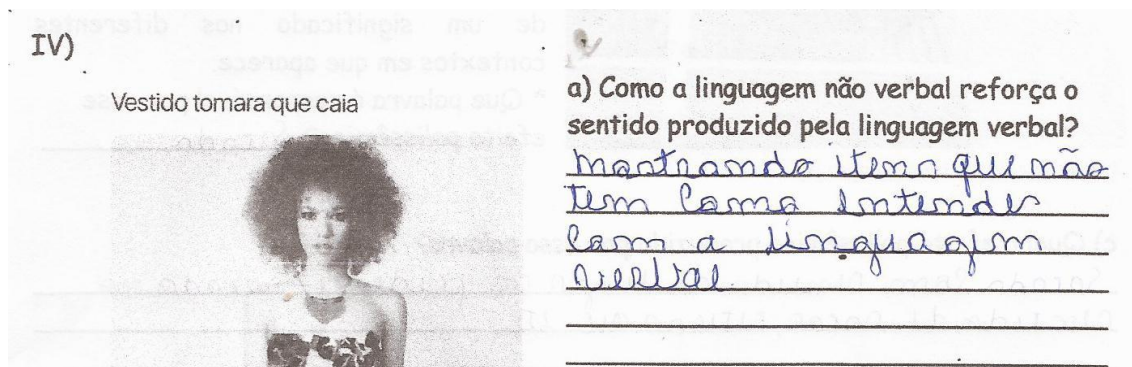 IV)
Vestido tomara que caia
a) Como a linguagem não verbal reforça o
sentido produzido pela linguagem verbal?
mostrando itens que não
tem como entender
com a linguagem
verbal